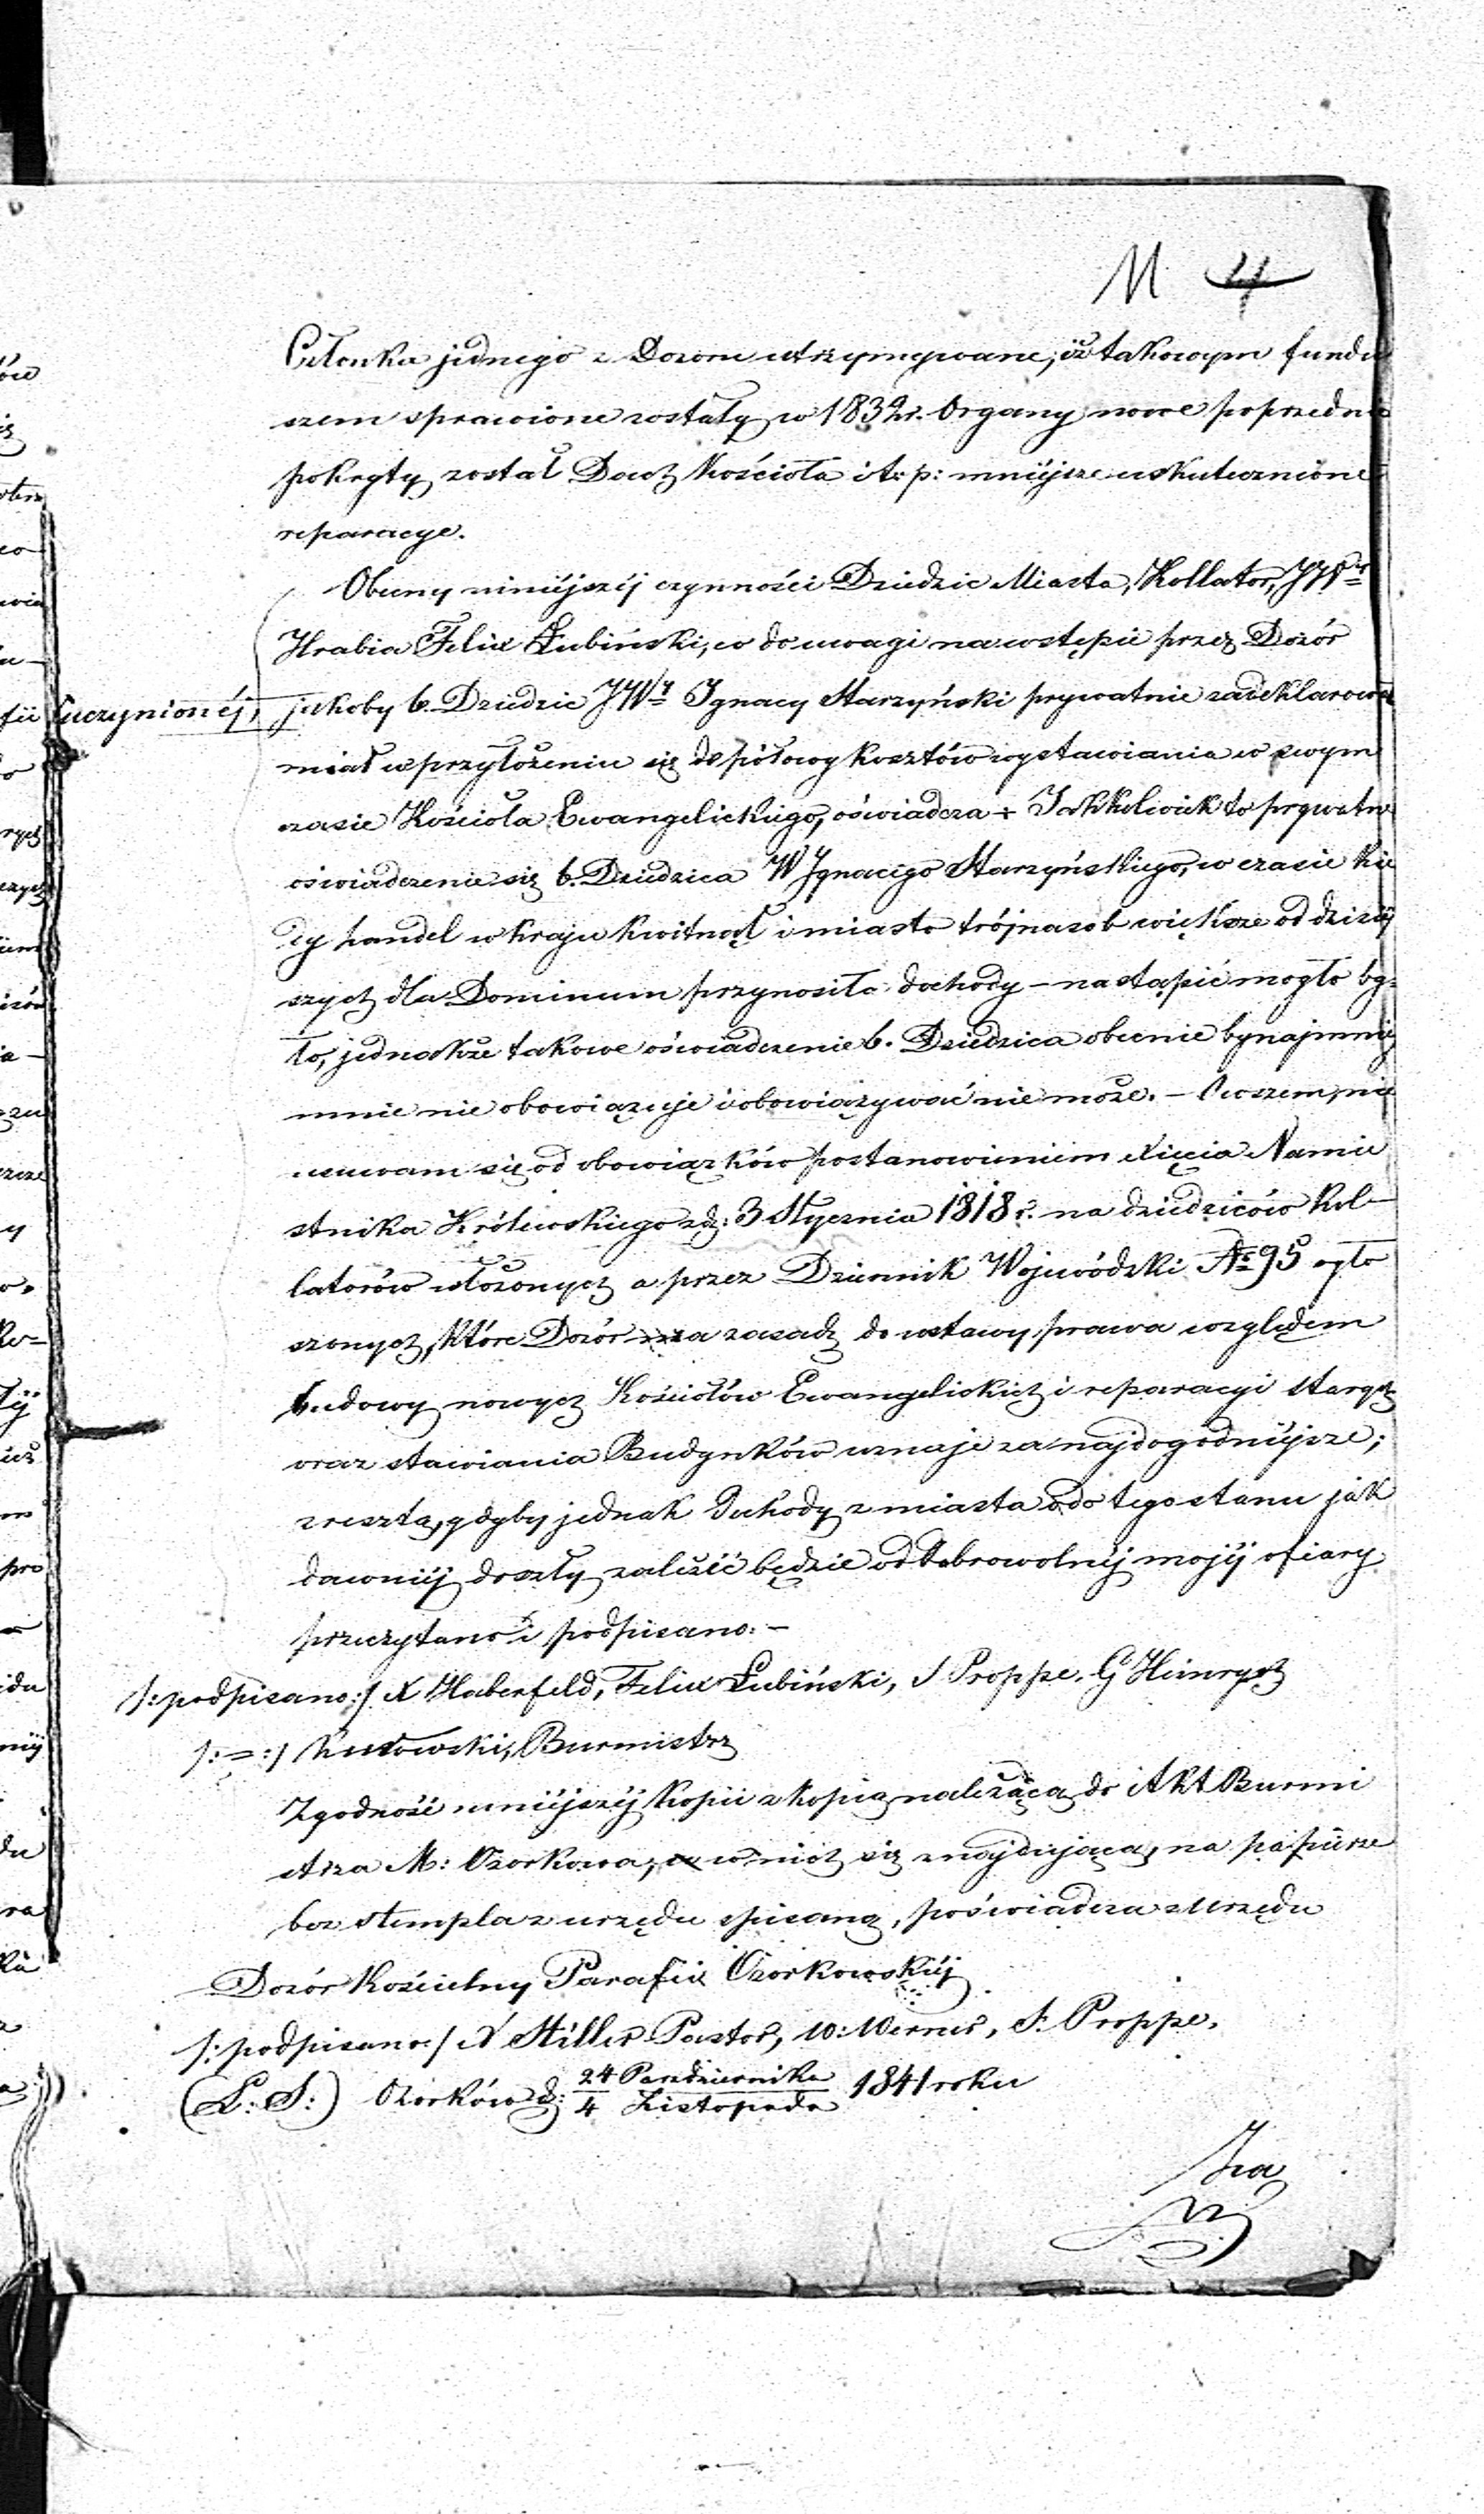 11 4
Członka jednego z Dozoru utrzymywane, iż takowym fundu
szem sprawione zostały w 1832 r. Organy nowe poprzednio
pokryty został Dach Kościoła i t: p: mniejsze uskutecznione
reparacye.
Obecny niniejszéj czynności Dziedzic Miasta, Kollator, JWny
Hrabia Felix Łubiński, co do uwagi na wstępie przez Dozór
uczynionéj, jakoby b. Dziedzic JWny Ignacy Starzyński prywatnie zadeklarować
miał w przyłożeniu się do połowy kosztów wystawiania w swym
czasie Kościoła Ewangelickiego, oświadcza + Jakkolwiek to prywatne
oświadczenie się b. Dziedzica W Ignacego Starzyńskiego, w czasie kie
dy handel w kraju kwitnął i miasto trójnasob większe od dzisiéj
szych dla Dominum przynosiło dochody – nastąpić mogło by=
ło, jednakże takowe oświadczenie b. Dziedzica obecnie bynajmniéj
mnie nie obowiązuje i obowiązywać nie może. – Owszem, nie
usuwam się od obowiązków postanowieniem Xięcia Namie
stnika Królewskiego z d: 3 Stycznia 1818 r. na dziedziców Kol-
latorów włożonych a przez Dziennik Wojewódzki No 95 ogło
szonych, które Dozór za zasadę do ustawy prawa względem
budowy nowych Kościołów Ewangelickich i reparacyi starych
oraz stawiania Budynków uznaje za najdogodniejsze;
zresztą, gdyby jednak Dochody z miasta do tego stanu jak
dawniéj doszły, zależéć będzie od dobrowolnéj mojéj ofiary.
przeczytano i podpisano. –
/:podpisano:/ X Haberfeld, Felix Łubiński, S Proppe, G Heinrych
/: = :/ Kutowski, Burmistrz
Zgodność niniejszéj Kopii z kopią należącą do Akt Burmi
strza M: Ozorkowa, w nich się znajdującą, na papierze
bez stempla z urzędu spisaną, poświadcza z Urzędu
Dozór Kościelny Parafii Ozorkowskiéj
/:podpisano:/ X Stiller Pastor, W: Werner, S. Proppe.
(L: S:) Ozorków d: 24 Pazdziernika / 4 Listopada 1841 roku